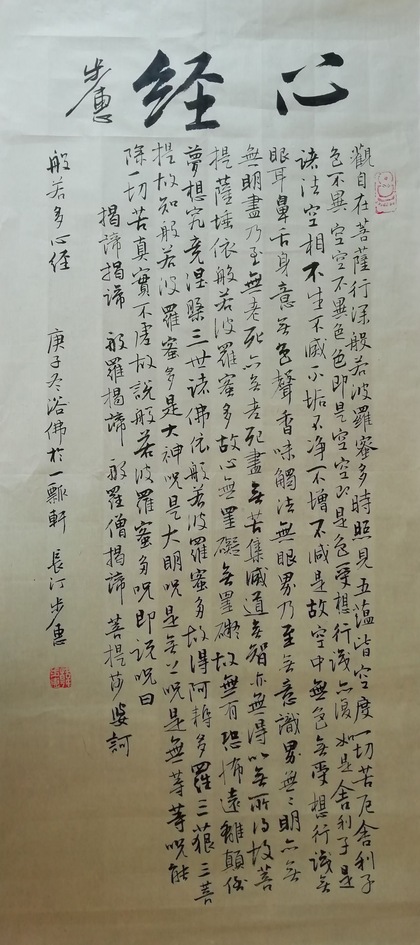 心经
步惠
觀自在菩薩行深般若波羅蜜多時照見五蘊皆空度一切苦厄舍利子
色不異空空不異色色即是空空即是色受想行識亦復如是舍利子是
諸法空相不生不滅不垢不净不增不減是故空中無色無受想行識無
眼耳鼻舌身意無色聲香味觸法無眼界乃至無意識界無〻明亦無
無明盡乃至無老死亦無老死盡無苦集滅道無智亦無得以無所得故菩
提薩埵依般若波羅蜜多故心無罣礙無罣礙故無有恐怖遠離顛倒
夢想究竟涅槃三世諸佛依般若波羅蜜多故得阿耨多羅三藐三菩
提故知般若波羅蜜多是大神咒是大明咒是無上咒是無等等咒能
除一切苦真實不虛故說般若波羅蜜多咒即說咒曰
揭諦揭諦 般羅揭諦 般羅僧揭諦 菩提莎婆訶
般若多心經 庚子冬浴佛於一瓢軒 長汀步惠